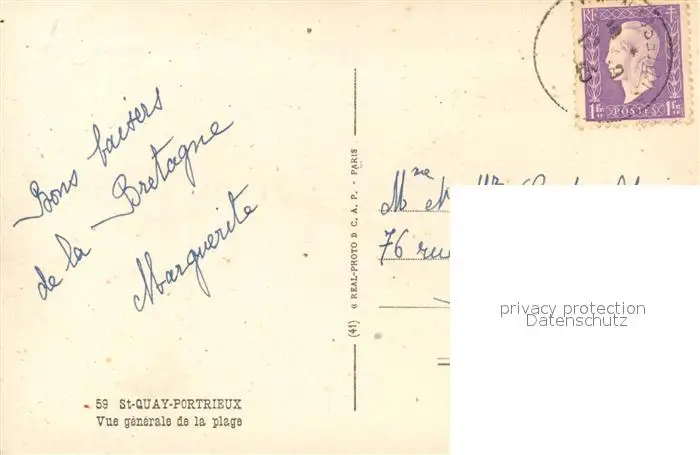 Bons baisers
de la Bretagne
Marguerite
59 St-QUAY-PORTRIEUX
Vue générale de la plage
(41) G REAL-PHOTO D C. A. P. - PARIS
RF
1fr POSTES 1fr
Mme
76 rue
privacy protection
Datenschutz